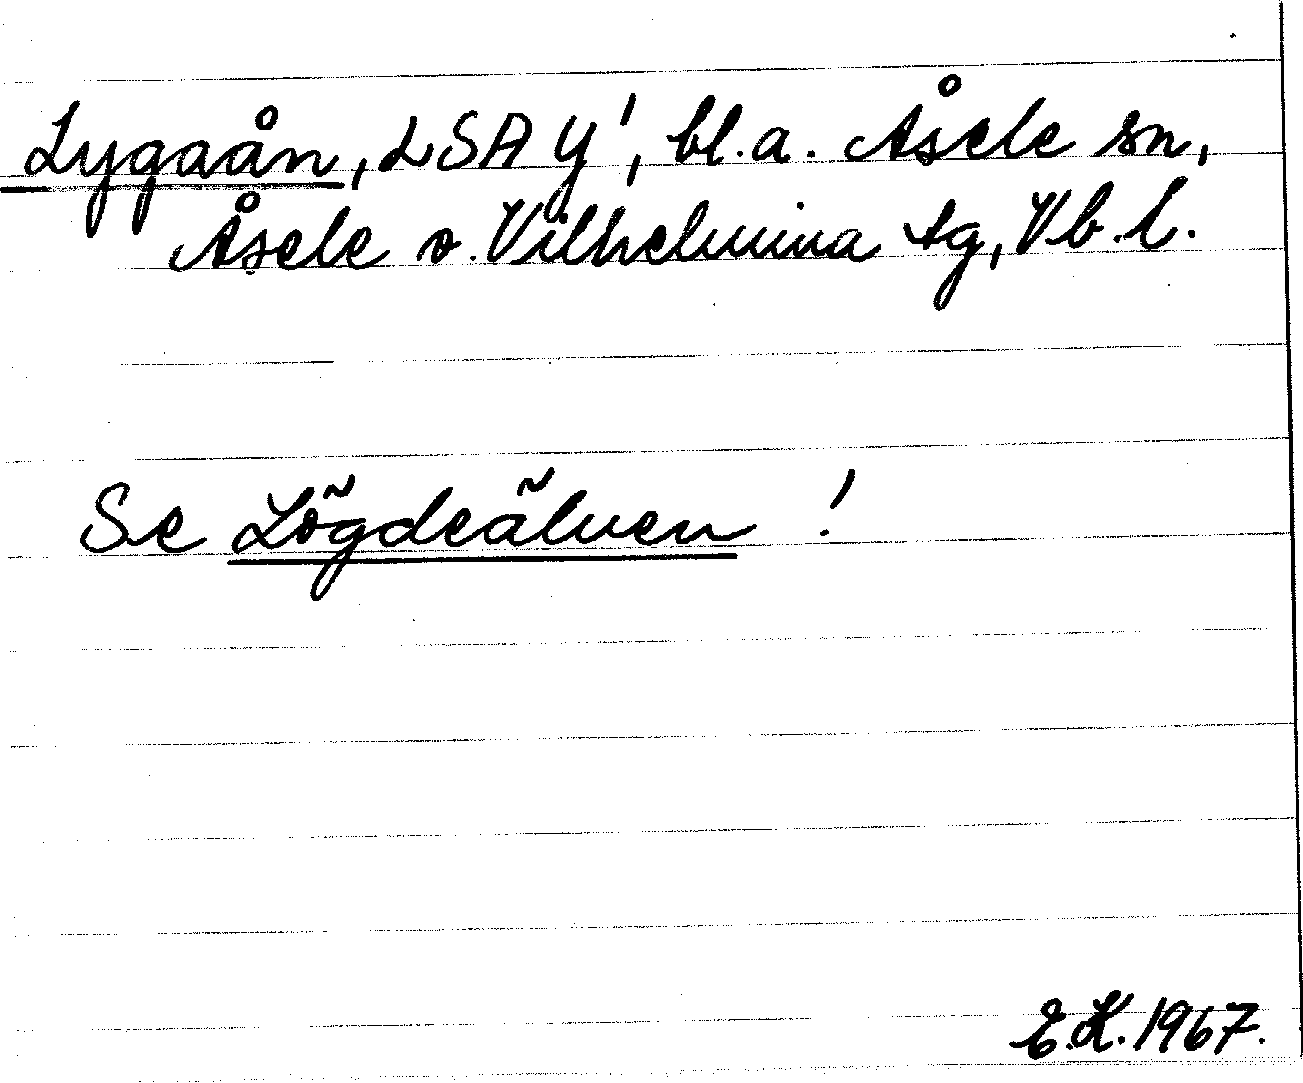 Lygaån, LSA Y', bl.a. Åsele sn,
Åsele o. Vilhelmina tg, Vb.l.
Se Lögdeälven !
E.K. 1967.